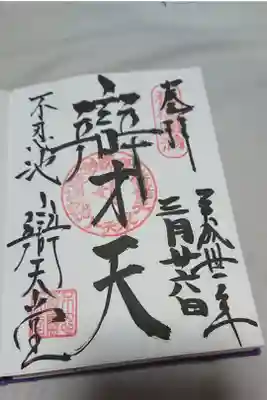 奉拝
平成卅一年
三月廿六日
辯才天
不忍池 辯天堂